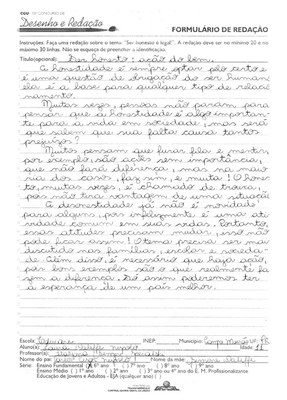 CGU
Desenho e Redação
FORMULÁRIO DE REDAÇÃO
Instruções: Faça uma redação sobre o tema: "Ser honesto é legal". A redação deve ter no mínimo 20 e no
máximo 30 linhas. Não se esqueça de preencher a identificação.
Título(opcional): Ser honesto: ação do bem.
A honestidade é sempre optar pelo certo e
é uma questão de obrigação do ser human
ela é a base para qualquer tipo de relaci
namento.
Muitas vezes, pessoas não param para
pensar que a honestidade é algo importan-
te para a vida em sociedade, mas será
que sabem que sua falta causa tantos
prejuízos?
Muitos pensam que furar fila e mentir,
por exemplo, são ações sem importância,
que não fará diferença, mas na maio
ria dos casos, faz sim, e muita! O hones
to, muitas vezes, é chamado de trouxa,
por não tirar vantagem de uma situação
A desonestidade já não é novidade
para alguns, pois infelizmente é uma at
vidade comum em suas vidas. Portanto,
essas atitudes precisam mudar, isso não
pode ficar assim! O tema precisa ser mais
discutido nas famílias, escolas e socieda-
de. Além disso, é necessário que haja ação,
pois bons exemplos são o que realmente fa
zem a diferença. Só assim poderemos ter
a esperança de um país melhor.
Escola:
INEP:
Município: Campo Mourão UF: PR
Aluno(a):
Idade:
Professor(a):
Nome do pai:
Nome da mãe:
Série: Ensino Fundamental
Ensino Médio ( ) 1º ano ( ) 2º ano ( ) 3º ano ou ( ) 4º ano do E. M. Profissionalizante
Educação de Jovens e Adultos - EJA (qualquer ano) ( )